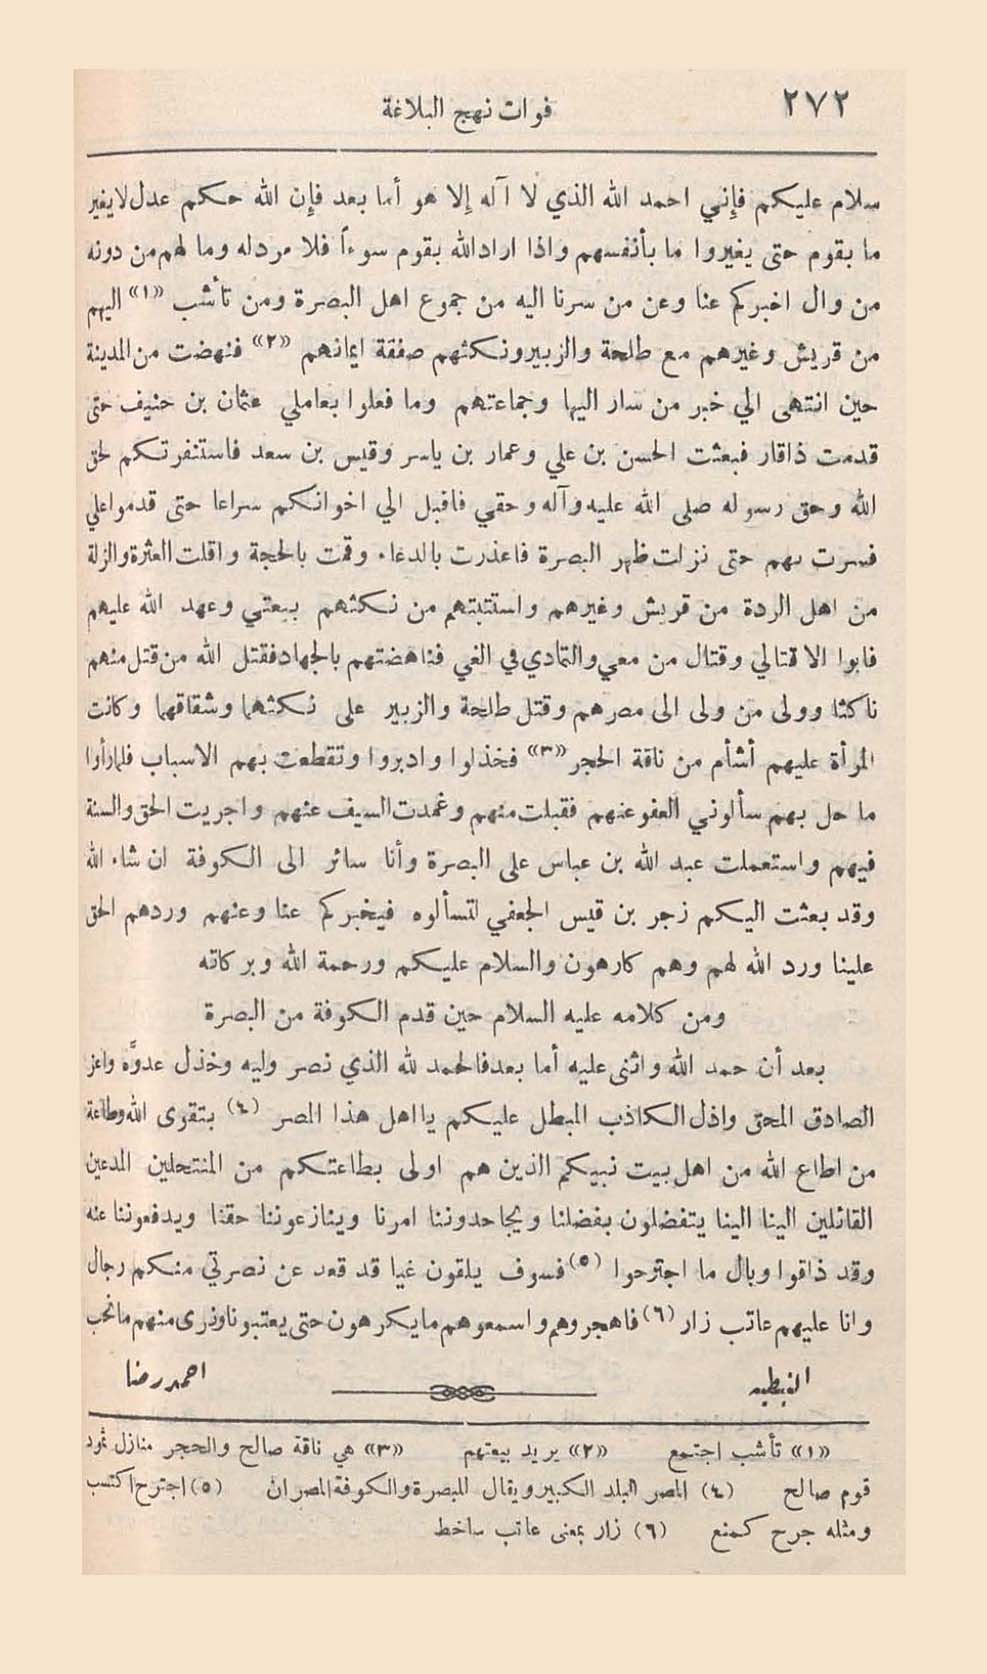 ٢٧٢
فوات نهج البلاغة
سلام عليكم فإني احمد الله الذي لا آله إلا هو أما بعد فإن الله حكم عدل لا يغير
ما بقوم حتى يغيروا ما بأنفسهم واذا اراد الله بقوم سوءاً فلا مرد له وما لهم من دونه
من وال اخبركم عنا وعن من سرنا اليه من جموع اهل البصرة ومن تأشب «١» اليهم
من قريش وغيرهم مع طلحة والزبير ونكثهم صفقة ايمانهم «٢» فنهضت من المدينة
حين انتهى الي خبر من سار اليها وجماعتهم وما فعلوا بعاملي عثمان بن حنيف حتى
قدمت ذاقار فبعثت الحسن بن علي وعمار بن ياسر وقيس بن سعد فاستنفرتكم لحق
الله وحق رسوله صلى الله عليه وآله وحقي فاقبل الي اخوانكم سراعا حتى قدموا علي
فسرت بهم حتى نزلت ظهر البصرة فاعذرت بالدعاء وقمت بالحجة واقلت العثرة والزلة
من اهل الردة من قريش وغيرهم واستتبتهم من نكثهم ببعتي وعهد الله عليهم
فابوا الا قتالي وقتال من معي والتمادي في الغي فناهضتهم بالجهاد فقتل الله من قتل منهم
ناكثا وولى من ولى الى مصرهم وقتل طلحة والزبير على نكثهما وشقاقهما وكانت
المرأة عليهم أشأم من ناقة الحجر «٣» فخذلوا وادبروا وتقطعت بهم الاسباب فلما رأوا
ما حل بهم سألوني العفو عنهم فقبلت منهم وغمدت السيف عنهم واجريت الحق والسنة
فيهم واستعملت عبد الله بن عباس على البصرة وأنا سائر الى الكوفة ان شاء الله
وقد بعثت اليكم زجر بن قيس الجعفي لتسألوه فيخبركم عنا وعنهم وردهم الحق
علينا ورد الله لهم وهم كارهون والسلام عليكم ورحمة الله وبركاته
ومن كلامه عليه السلام حين قدم الكوفة من البصرة
بعد أن حمد الله واثنى عليه أما بعد فالحمد لله الذي نصر وليه وخذل عدوَّه واعز
الصادق المحق واذل الكاذب المبطل عليكم يا اهل هذا المصر (٤) بتقوى الله وطاعة
من اطاع الله من اهل بيت نبيكم الذين هم اولى بطاعتكم من المنتحلين المدعين
القائلين الينا الينا يتفضلون بفضلنا ويجاحدوننا امرنا وينازعوننا حقنا ويدفعوننا عنه
وقد ذاقوا وبال ما اجترحوا (٥) فسوف يلقون غيا قد قعد عن نصرتي منكم رجال
وانا عليهم عاتب زار (٦) فاهجروهم واسمعوهم ما يكرهون حتى يعتبونا ونرى منهم ما نحب
النبطيه احمد رضا
«١» تأشب اجتمع «٢» يريد بيعتهم «٣» هي ناقة صالح والحجر منازل ثمود
قوم صالح (٤) المصر البلد الكبير ويقال للبصرة والكوفة المصران (٥) اجترح اكتسب
ومثله جرح كمنع (٦) زار بمعنى عاتب ساخط